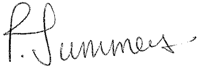 P. Summers.